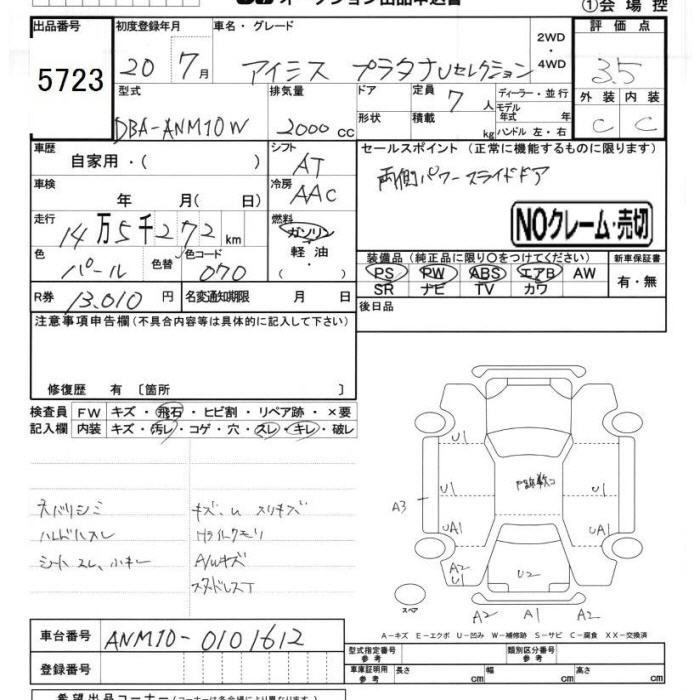 オークション出品申込書
①会場控
出品番号
5723
初度登録年月
20 7月
車名・グレード
アイシス プラタナUセレクション
2WD
・
4WD
評価点
3.5
型式
DBA-ANM10W
排気量
2000cc
ドア
形状
定員 7人
積載 kg
ディーラー・並行
モデル
年式 年
ハンドル 左・右
外装 内装
C C
車歴
自家用・( )
シフト
AT
セールスポイント (正常に機能するものに限ります)
両側パワースライドドア
車検
年 月( 日)
冷房
AAC
NOクレーム・売切
走行
14万5千272km
燃料
ガソリン
軽油
・
色
パール
色替
色コード
070
装備品(純正品に限り○をつけてください)
PS PW ABS エアB AW
SR ナビ TV カワ
新車保証書
有・無
R券 13,010円
名変通知期限 月 日
後日品
注意事項申告欄(不具合内容等は具体的に記入して下さい)
修復歴 有 〔箇所 〕
検査員
記入欄
FW キズ・飛石・ヒビ割・リペア跡・×要
内装 キズ・汚レ・コゲ・穴・スレ・キレ・破レ
ネバリシミ
ハンドルスレ
シートスレ、
キズ、U スリキズ
Hライトクモリ
A/Wキズ
スタッドレスT
U1
U1
U1
UA1
UA1
A3
A2
U1
A2
U2
スペア
A2 A1 A2
A-キズ E-エクボ U-凹み W-補修跡 S-サビ C-腐食 XX-交換済
車台番号 ANM10-0101612
登録番号
型式指定番号
参考
類別区分番号
参考
車庫証明用
参考
長さ cm 幅 cm 高さ cm
希望出品コーナー